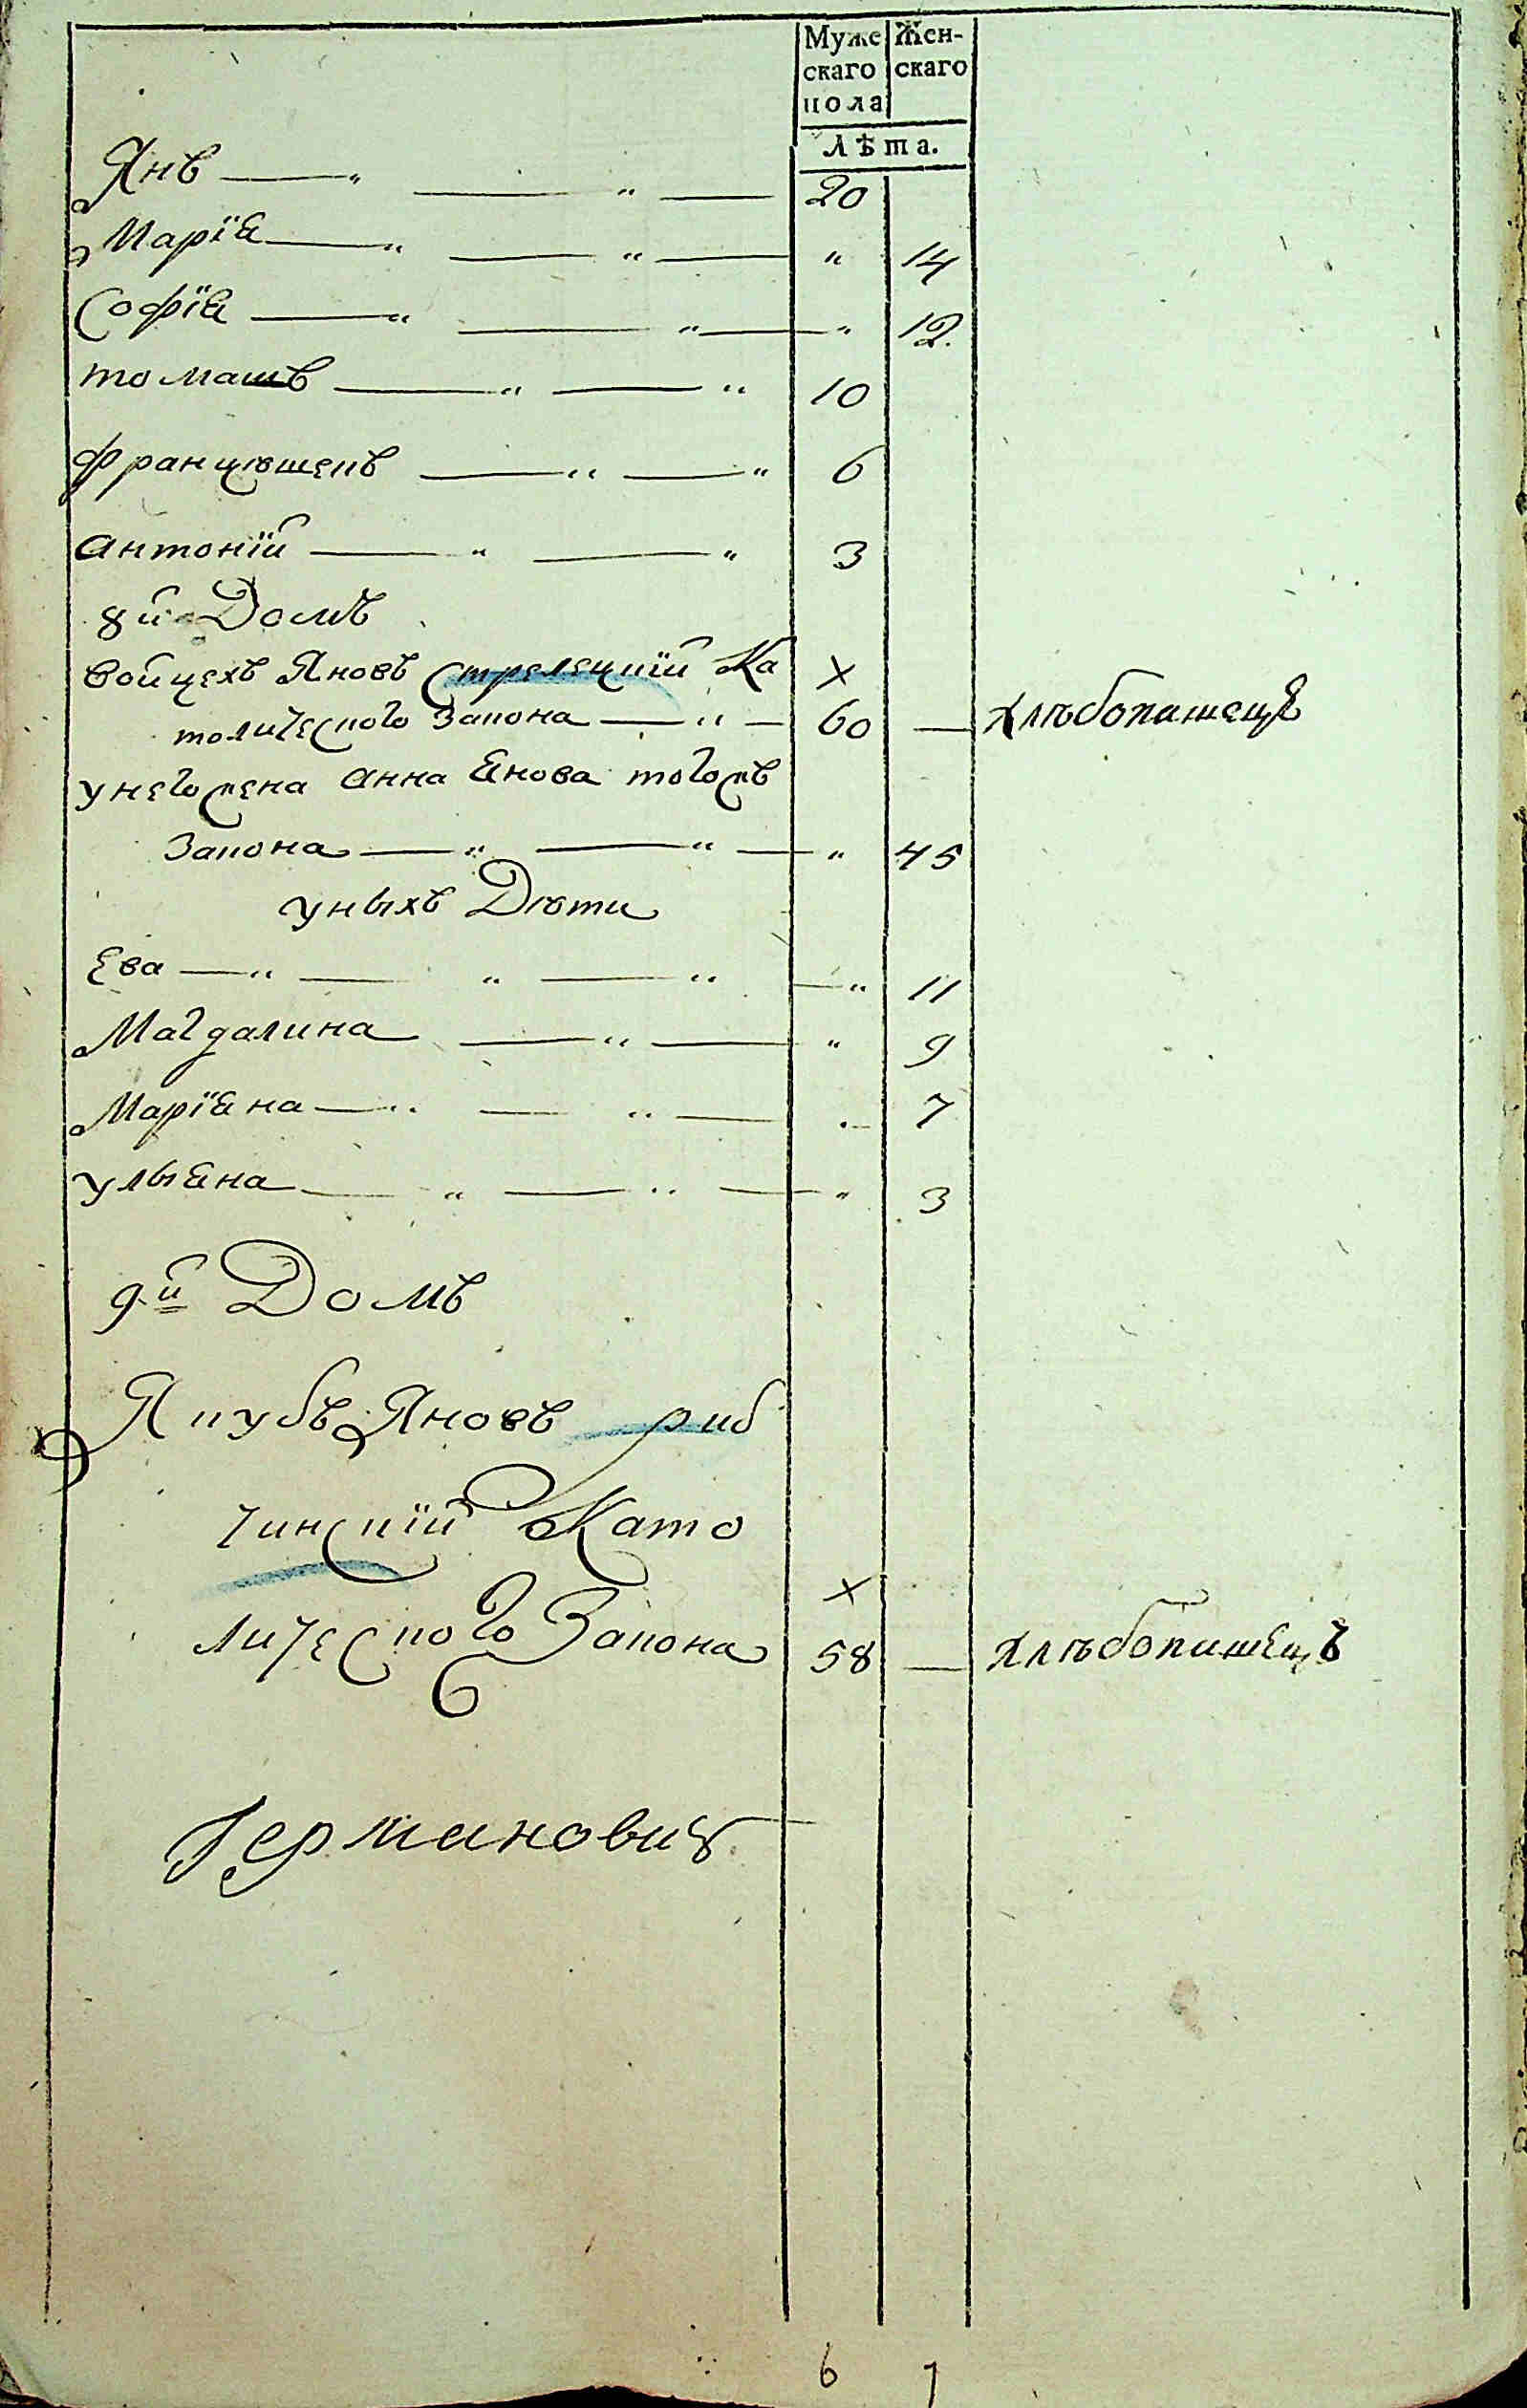 Муже Жен-
скаго скаго
пола
Лѣта.
Янъ — " — " — 20
Марїя — " — " — " 14
Софїя — " — " — " 12.
томашъ — " — " 10
францѣшекъ — " — " 6
антонїй — " — " 3
8й Домъ
войцехъ Яновъ Стрелецкїй Ка ×
толического закона — " — 60 — хлѣбопашецъ
унего жена анна янова тогожъ
закона — " — " — " 45
уныхъ Дѣти
Ева — " — " — " — " 11
Магдалина — " — " 9
Марїяна — " — " — " 7
ульяна — " — " — " 3
9й Домъ
Якубъ Яновъ риб
чинскїй Като
×
лического Закона 58 — хлѣбопашецъ
Германович
6 7